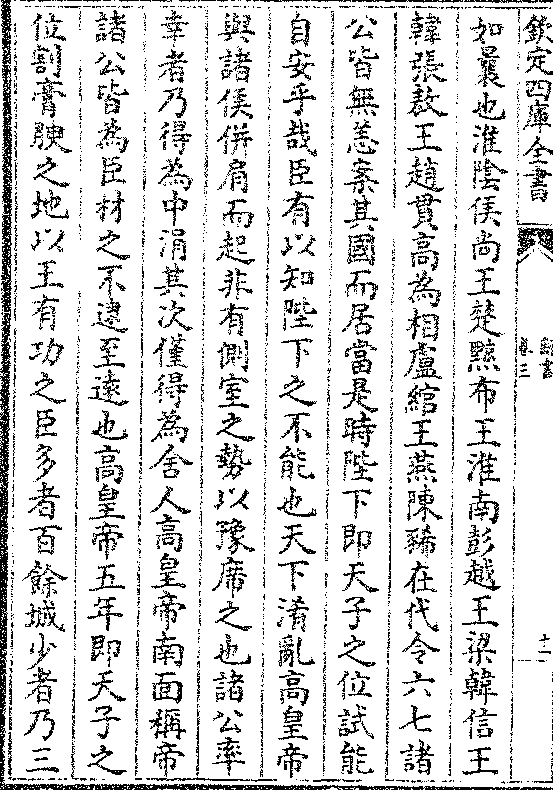 欽定四庫全書
卷三
十一
如曩也淮陰侯尚王楚黥布王淮南彭越王梁韓信王
韓張敖王趙貫高為相盧綰王燕陳豨在代令六七諸
公皆無恙案其國而居當是時陛下即天子之位試能
自安乎哉臣有以知陛下之不能也天下淆亂高皇帝
與諸侯併肩而起非有側室之勢以豫席之也諸公率
幸者乃得為中涓其次僅得為舍人高皇帝南面稱帝
諸公皆為臣材之不逮至遠也高皇帝五年即天子之
位割膏腴之地以王有功之臣多者百餘城少者乃三